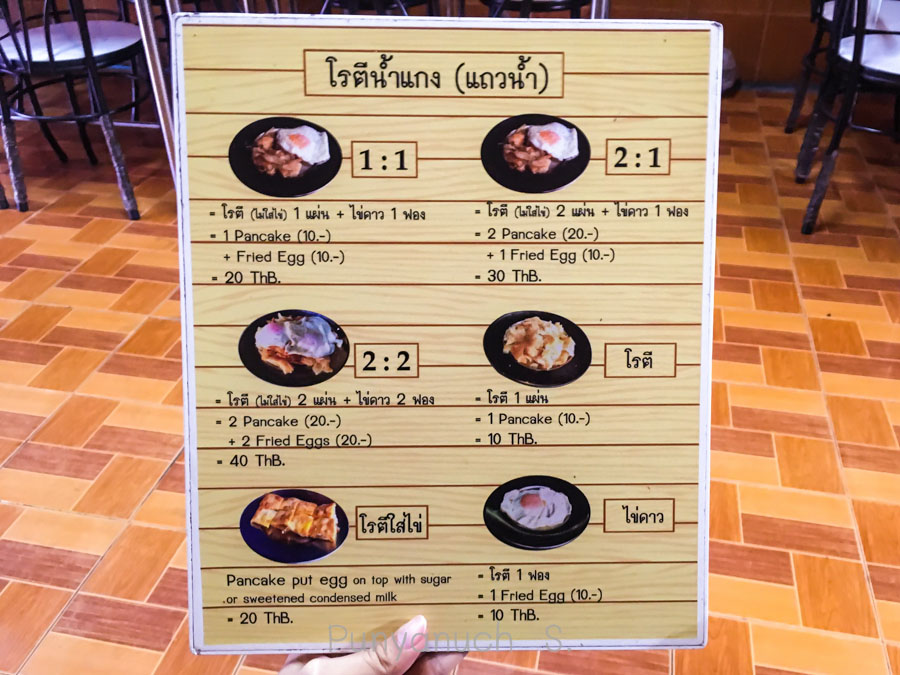 โรตีน้ำแกง (แถวน้ำ)
1 : 1
= โรตี (ไม่ใส่ไข่) 1 แผ่น + ไข่ดาว 1 ฟอง
= 1 Pancake (10.-)
+ Fried Egg (10.-)
= 20 ThB.
2 : 1
= โรตี (ไม่ใส่ไข่) 2 แผ่น + ไข่ดาว 1 ฟอง
= 2 Pancake (20.-)
+ 1 Fried Egg (10.-)
= 30 ThB.
2 : 2
= โรตี (ไม่ใส่ไข่) 2 แผ่น + ไข่ดาว 2 ฟอง
= 2 Pancake (20.-)
+ 2 Fried Eggs (20.-)
= 40 ThB.
โรตี
= โรตี 1 แผ่น
= 1 Pancake (10.-)
= 10 ThB.
โรตีใส่ไข่
Pancake put egg on top with sugar
.or sweetened condensed milk
= 20 ThB.
ไข่ดาว
= โรตี 1 ฟอง
= 1 Fried Egg (10.-)
= 10 ThB.
Punyanuch S.